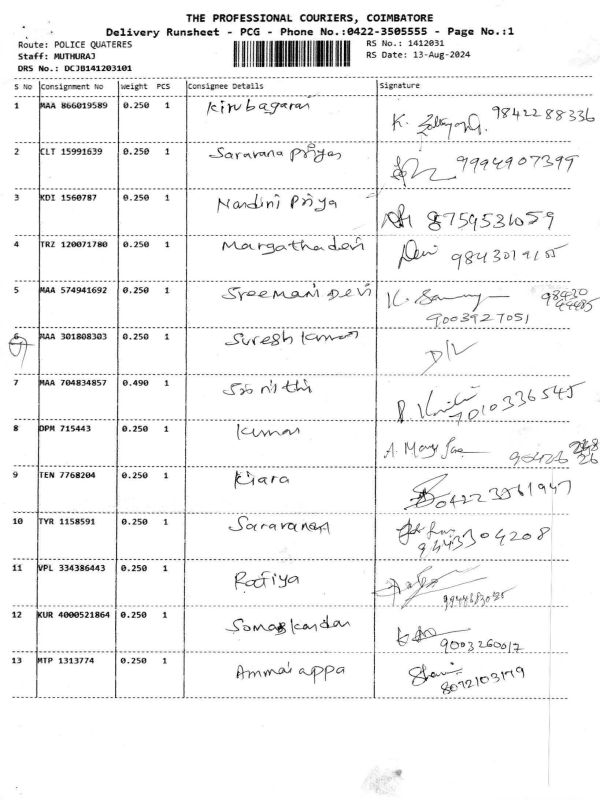 THE PROFESSIONAL COURIERS, COIMBATORE
Delivery Runsheet - PCG - Phone No.:0422-3505555 - Page No.:1
Route: POLICE QUATERES
RS No.: 1412031
Staff: MUTHURAJ
RS Date: 13-Aug-2024
DRS No.: DCJB141203101
S No Consignment No Weight PCS Consignee Details Signature
1 MAA 866019589 0.250 1 Kirubagaran
K. 9842288336
2 CLT 15991639 0.250 1 Saravana Priya
9994907399
3 KDI 1560787 0.250 1 Nandini Priya
8759531059
4 TRZ 120071780 0.250 1 Margathadevi
Devi 9843019155
5 MAA 574941692 0.250 1 Sreemani Devi
K.
9003927051
6 MAA 301808303 0.250 1 Suresh Kumar
D/L
7 MAA 704834857 0.490 1
7010336545
8 DPM 715443 0.250 1 Kumar
A.
9 TEN 7768204 0.250 1 Kiara
04223561947
10 TYR 1158591 0.250 1 Saravanan
9443304208
11 VPL 334386443 0.250 1 Rafiya
12 KUR 4000521864 0.250 1 Somaskandan
9003260017
13 MTP 1313774 0.250 1 Ammaiappa
8072103179